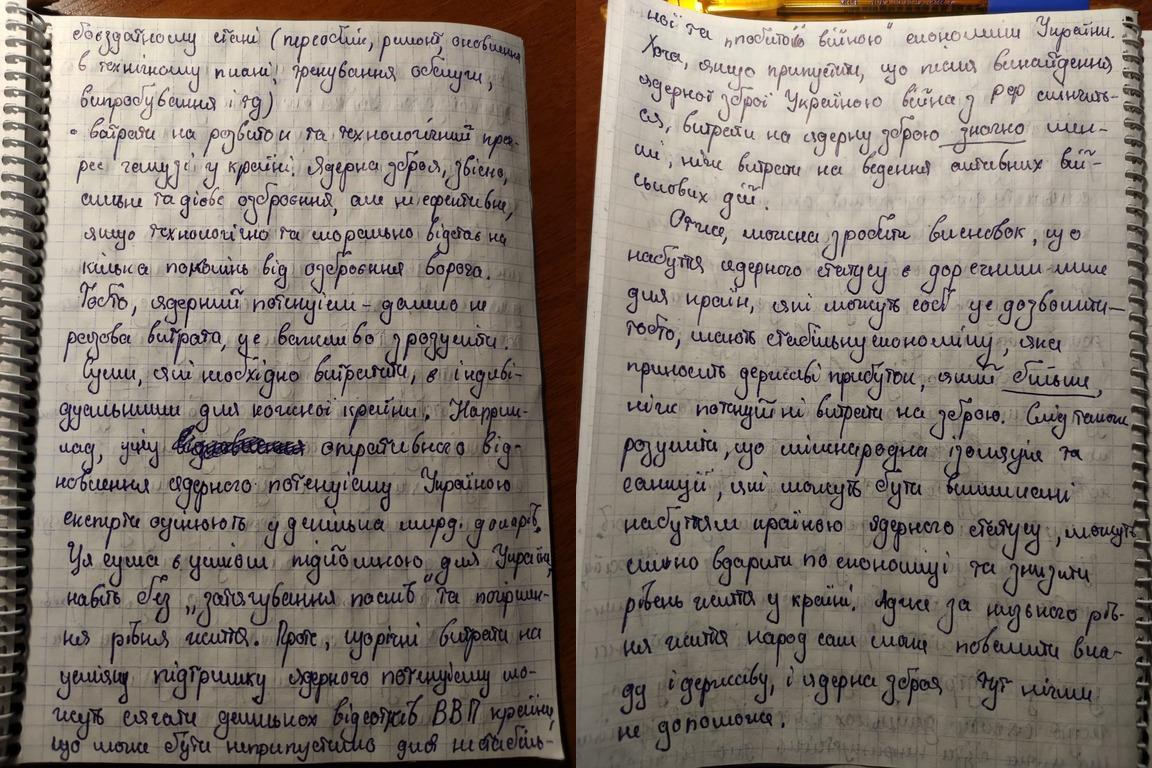 боєздатному стані (переоблік, ремонт, оновлення
в технічному плані, тренування обслуги,
випробування і тд)
• витрати на розвиток та технологічний прог-
рес галузі у країні. Ядерна зброя, звісно,
сильне та дієве озброєння, але не ефективне,
якщо технологічно та морально відстає на
кілька поколінь від озброєння ворога.
Тобто, ядерний потенціал – далеко не
разова витрата, це важливо зрозуміти.
Суми, які необхідно витратити, є індиві-
дуальними для кожної країни. Наприк-
лад, ціну оперативного від-
новлення ядерного потенціалу Україною
експерти оцінюють у декілька млрд. доларів.
Ця сума є цілком підйомною для України,
навіть без „затягування пасків" та погіршен-
ня рівня життя. Проте, щорічні витрати на
успішну підтримку ядерного потенціалу мо-
жуть сягати декількох відсотків ВВП країни,
що може бути неприпустимо для нестабіль-
ної та „побитої війною" економіки України.
Хоча, якщо припустити, що після винайдення
ядерної зброї Україною війна з РФ скінчить-
ся, витрати на ядерну зброю значно мен-
ші, ніж витрати на ведення активних вій-
ськових дій.
Отже, можна зробити висновок, що
набуття ядерного статусу є доречним лише
для країн, які можуть собі це дозволити –
тобто, мають стабільну економіку, яка
приносить державі прибуток, який більше,
ніж потенційні витрати на зброю. Слід також
розуміти, що міжнародна ізоляція та
санкції, які можуть бути викликані
набуттям країною ядерного статусу, можуть
сильно вдарити по економіці та знизити
рівень життя у країні. Адже за низького рів-
ня життя народ сам може повалити вла-
ду і державу, і ядерна зброя тут нічим
не допоможе.